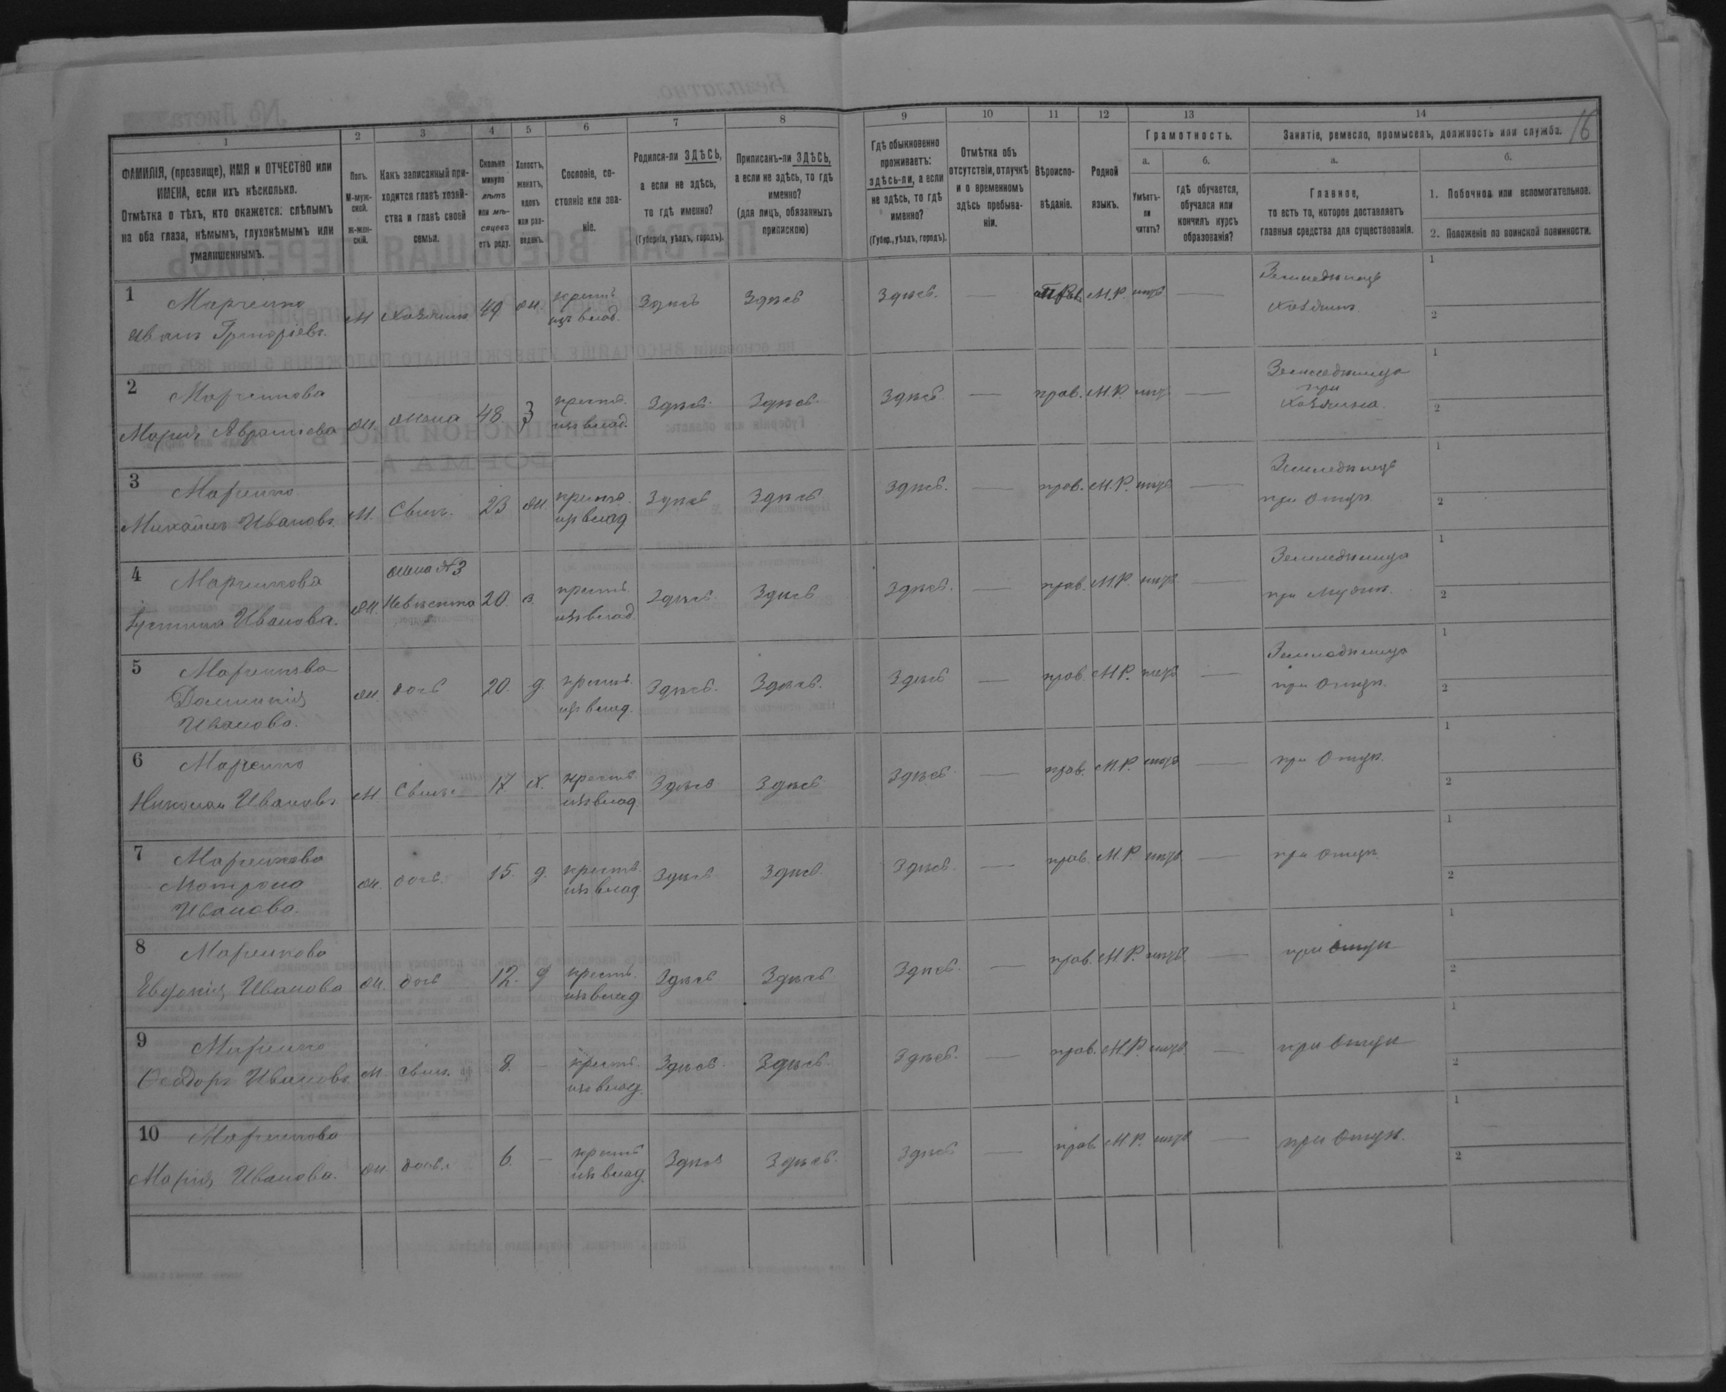 16
1 2 3 4 5 6 7 8 9 10 11 12 13 14
ФАМИЛІЯ, (прозвище), ИМЯ и ОТЧЕСТВО или
ИМЕНА, если ихъ нѣсколько.
Отмѣтка о тѣхъ, кто окажется: слѣпымъ
на оба глаза, нѣмымъ, глухонѣмымъ или
умалишеннымъ.
Полъ.
М-муж-
ской.
ж-жен-
скій.
Какъ записанный при-
ходится главѣ хозяй-
ства и главѣ своей
семьи.
Сколько
минуло
лѣтъ
или мѣ-
сяцевъ
отъ роду.
Холостъ,
женатъ,
вдовъ
или раз-
веденъ.
Сословіе, со-
стояніе или зва-
ніе.
Родился-ли ЗДѢСЬ,
а если не здѣсь,
то гдѣ именно?
(Губернія, уѣздъ, городъ).
Приписанъ-ли ЗДѢСЬ,
а если не здѣсь, то гдѣ
именно?
(для лицъ, обязанныхъ
припискою)
Гдѣ обыкновенно
проживаетъ:
здѣсь-ли, а если
не здѣсь, то гдѣ
именно?
(Губер., уѣздъ, городъ).
Отмѣтка объ
отсутствіи, отлучкѣ
и о временномъ
здѣсь пребыва-
ніи.
Вѣроиспо-
вѣданіе.
Родной
языкъ.
Грамотность.
а.
Умѣетъ-
ли
читать?
б.
гдѣ обучается,
обучался или
кончилъ курсъ
образованія?
Занятіе, ремесло, промыселъ, должность или служба.
а.
Главное,
то есть то, которое доставляетъ
главныя средства для существованія.
б.
1. Побочное или вспомогательное.
2. Положеніе по воинской повинности.
1 Марченко
Иванъ Григоріевъ. М Хозяинъ 49 ж. крест. Здѣсь Здѣсь Здѣсь. — Прав. М.Р. — Земледѣлецъ 1
изъ влад. Хозяинъ. 2
2 Марченкова
Марія Абрамова ж. жена 48 З крест. Здѣсь. Здѣсь. Здѣсь — прав. М.Р. — Земледѣлица 1
изъ влад. при
хозяина 2
3 Марченко
Михаилъ Ивановъ М. Сынъ. 23 ж. крест. Здѣсь Здѣсь Здѣсь. — прав. М.Р. — Земледѣлецъ 1
изъ влад при отцѣ. 2
4 Марченкова жена №3
Иванова. ж. Невѣстка 20 з. крест. Здѣсь Здѣсь Здѣсь. — прав. М.Р. — Земледѣлица 1
изъ влад при мужѣ. 2
5 Марченкова
Домникія
Иванова. ж. дочь 20. д. крест. Здѣсь. Здѣсь. Здѣсь — прав. М.Р. — Земледѣлица 1
изъ влад. при отцѣ. 2
6 Марченко
Николай Ивановъ М Сынъ 17 х. крест. Здѣсь Здѣсь Здѣсь — прав. М.Р. — при отцѣ. 1
изъ влад. 2
7 Марченкова
Матрона
Иванова. ж. дочь. 15. д. крест. Здѣсь Здѣсь. Здѣсь. — прав. М.Р. — при отцѣ. 1
изъ влад. 2
8 Марченкова
Евдокія Иванова ж. дочь 12. д крест. Здѣсь Здѣсь Здѣсь. — прав. М.Р. — при отцѣ 1
изъ влад 2
9 Марченко
Ѳеодоръ Ивановъ м. сынъ. 8. — крест. Здѣсь. Здѣсь. Здѣсь. — прав. М.Р. — при отцѣ 1
изъ влад. 2
10 Марченкова
Марія Иванова. ж. дочь. 6 — крест. Здѣсь Здѣсь. Здѣсь — прав М.Р. — при отцѣ. 1
изъ влад. 2